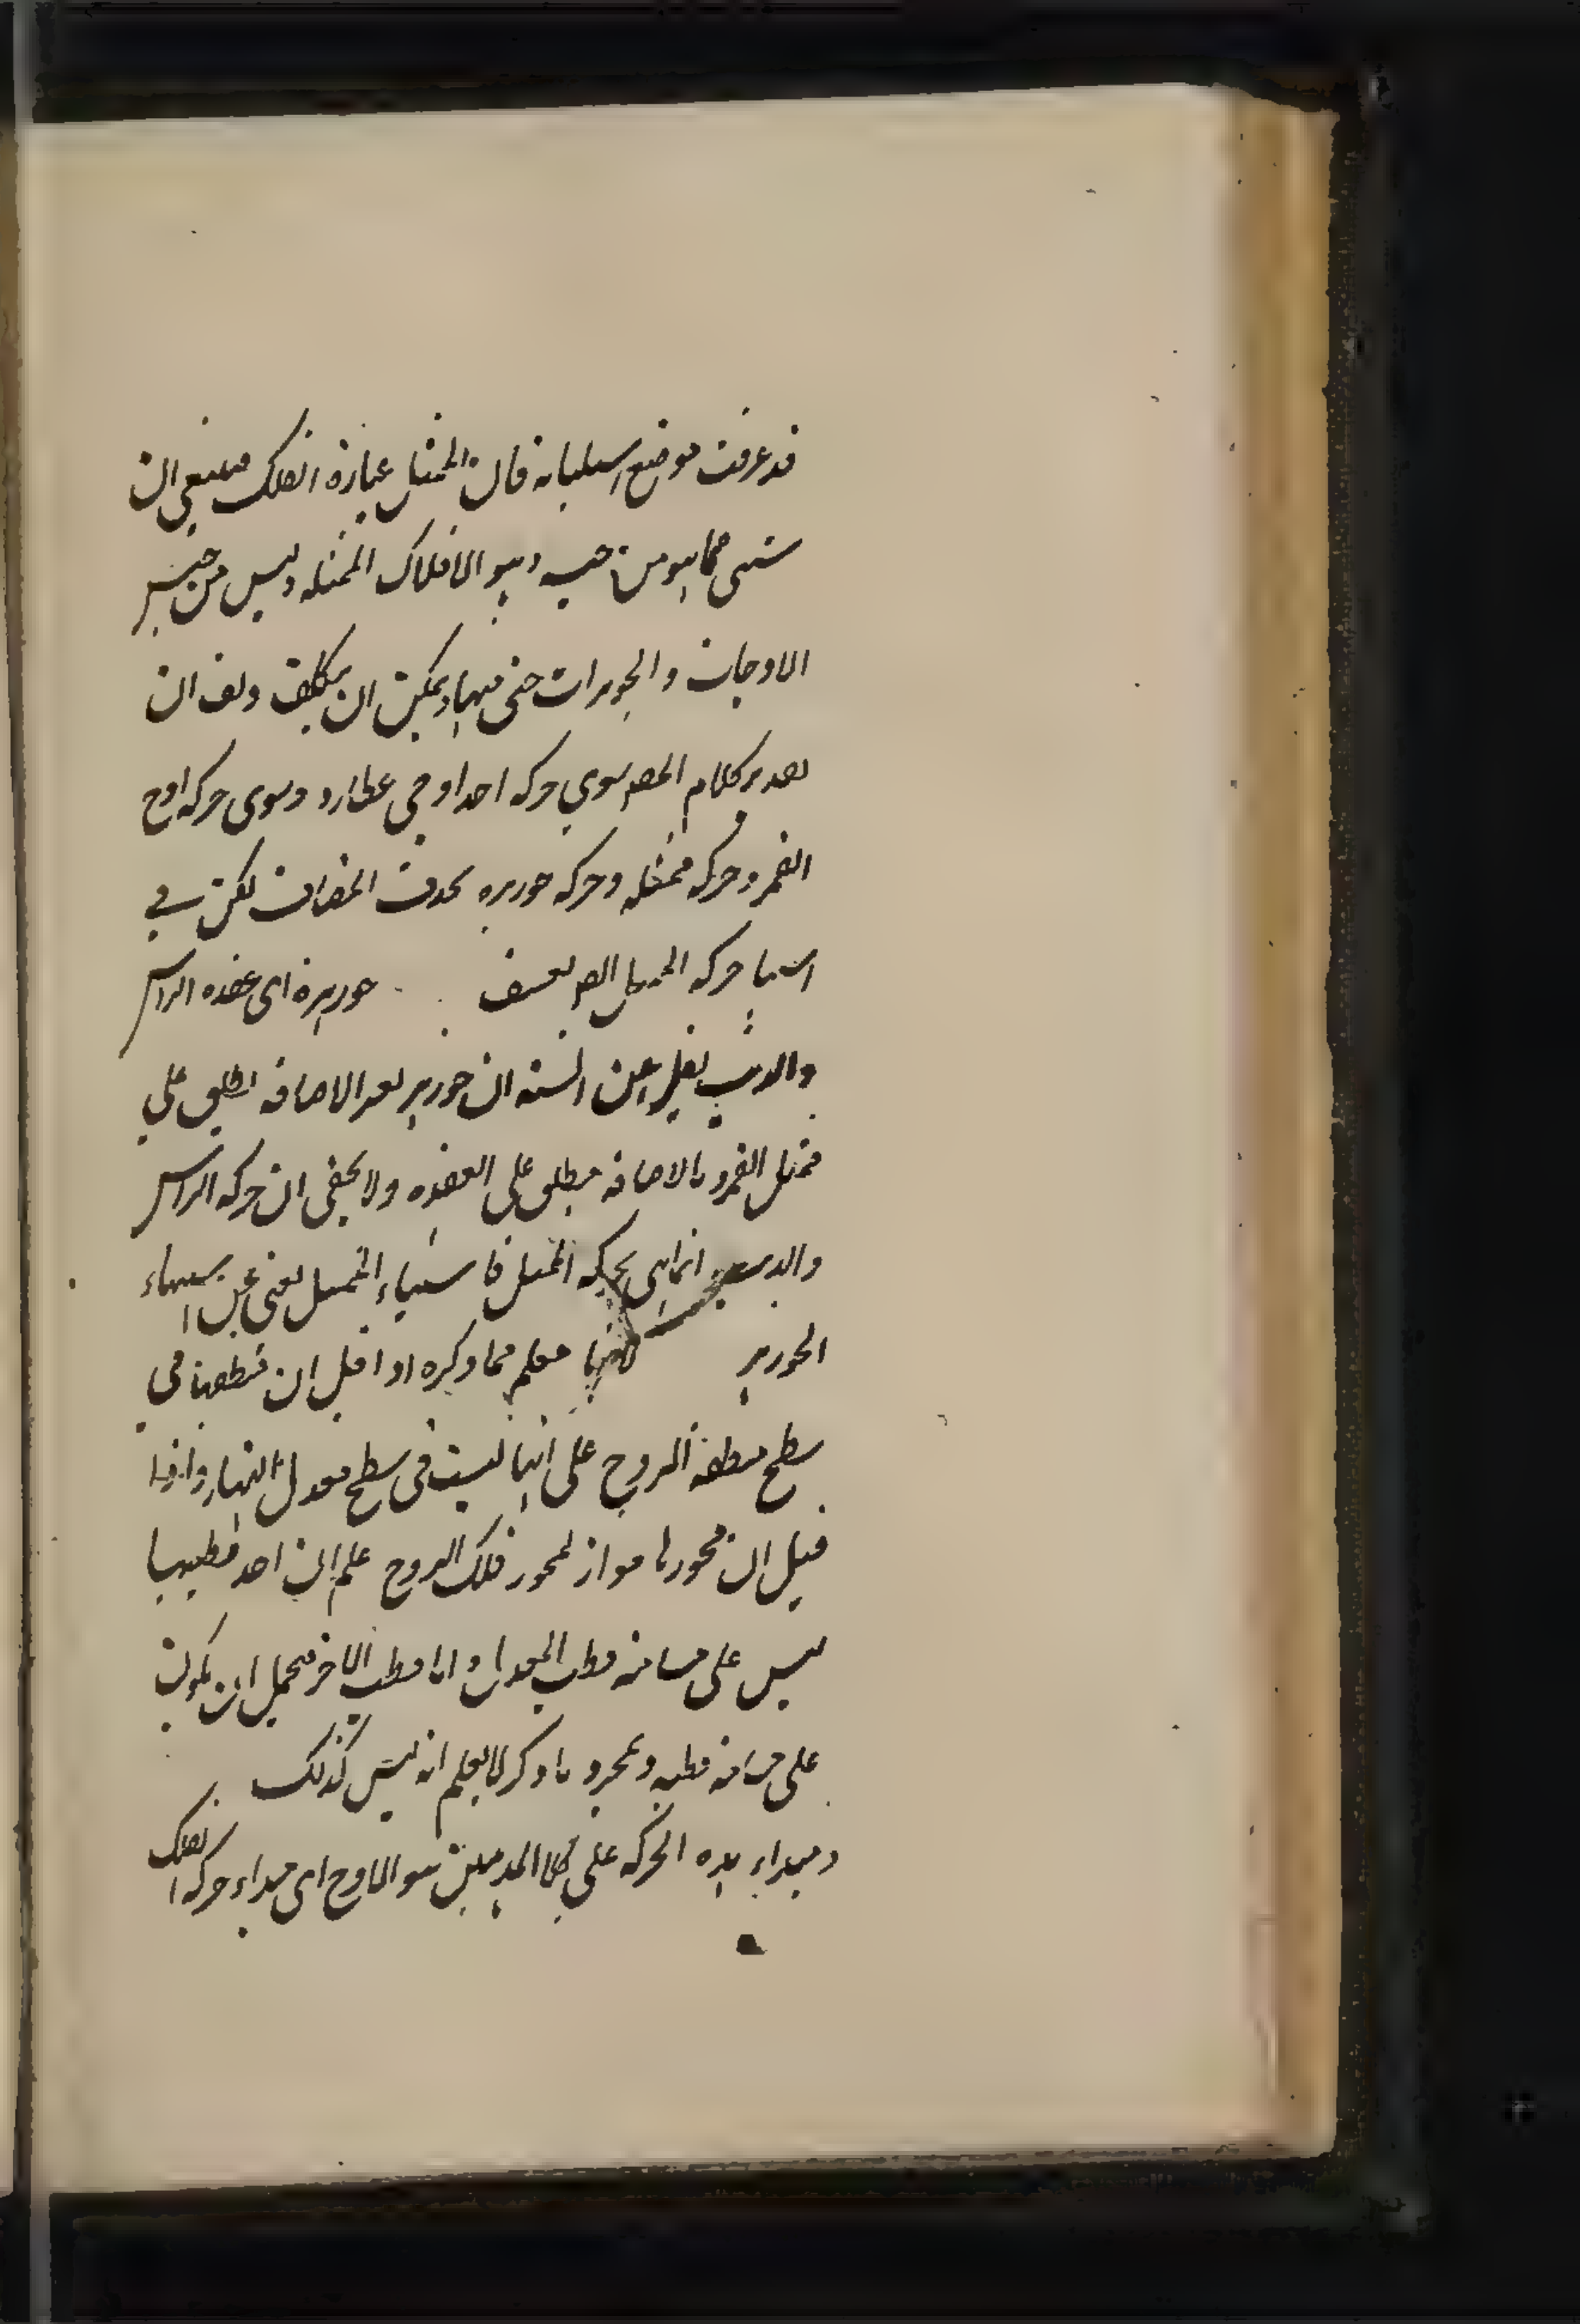 قد عرفت موضع استثنائه فان الممثل عبارة الفلك فينبغي ان
يستثنى مما هو من جنسه وهو الافلاك الممثله وليس من جنس
الاوجات والجوزهرات حتى منها ويمكن ان يتكلف ويقال ان
تقدير كلام المص سوى حركة احد اوجى عطارد وسوى حركه اوج
القمر وحركه ممثله وحركه جوزهره بحذف المضاف لكن في
استثناء حركه الممثل التعسف جوزهره اى عقده الراس
والذنب نقل عن السنه ان جوزهر بغير الاضافه يطلق على
ممثل القمر وبالاضافه يطلق على العقده ولا يخفى ان حركه الراس
والذنب انما هى بحركه الممثل فاستثناء الممثل يغنى عن استثناء
الجوزهر كانها فعلم مما ذكره اذا قيل ان منطقتها فى
سطح منطقة البروج على انها ليست فى سطح معدل النهار واذا
قيل ان محورها مواز لمحور فلك البروج علم ان احد قطبيها
ليس على مسامتة قطب المعدل واما قطب الاخر فيحتمل ان يكون
على مسامتة قطبه وبمجرد ما ذكر لا يعلم انه ليس كذلك
ومبداء هذه الحركه على كلا المذهبين هو الاوج اى مبداء حركة الفلك